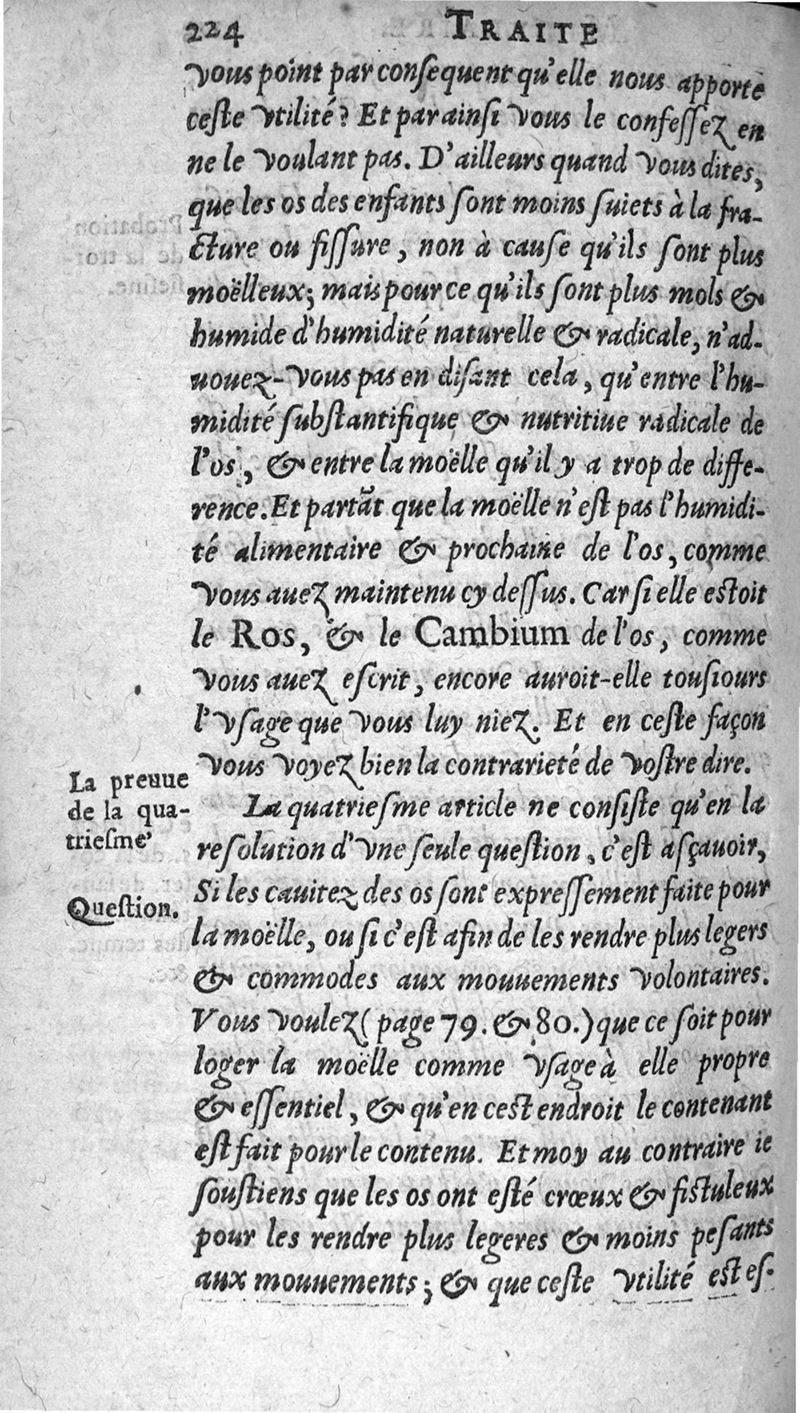 224 TRAITE
vous point par consequent qu'elle nous apporte
ceste vtilité? Et par ainsi vous le confessez en
ne le voulant pas. D'ailleurs quand vous dites,
que les os des enfants sont moins suiets à la fra-
cture ou fissure, non à cause qu'ils sont plus
moëlleux; mais pour ce qu'ils sont plus mols &
humide d'humidité naturelle & radicale, n'ad-
uouez-vous pas en disant cela, qu'entre l'hu-
midité substantifique & nutritiue radicale de
l'os, & entre la moëlle qu'il y a trop de diffe-
rence. Et partãt que la moëlle n'est pas l'humidi-
té alimentaire & prochaine de l'os, comme
vous auez maintenu cy dessus. Car si elle estoit
le Ros, & le Cambium de l'os, comme
vous auez escrit, encore auroit-elle tousiours
l'vsage que vous luy niez. Et en ceste façon
vous voyez bien la contrarieté de vostre dire.
La preuue
de la qua-
triesme
Question.
La quatriesme article ne consiste qu'en la
resolution d'vne seule question, c'est asçauoir,
Si les cauitez des os sont expressement faite pour
la moëlle, ou si c'est afin de les rendre plus legers
& commodes aux mouuements volontaires.
Vous voulez (page 79. & 80.) que ce soit pour
loger la moëlle comme vsage à elle propre
& essentiel, & qu'en cest endroit le contenant
est fait pour le contenu. Et moy au contraire ie
soustiens que les os ont esté crœux & fistuleux
pour les rendre plus legeres & moins pesants
aux mouuements; & que ceste vtilité est es-